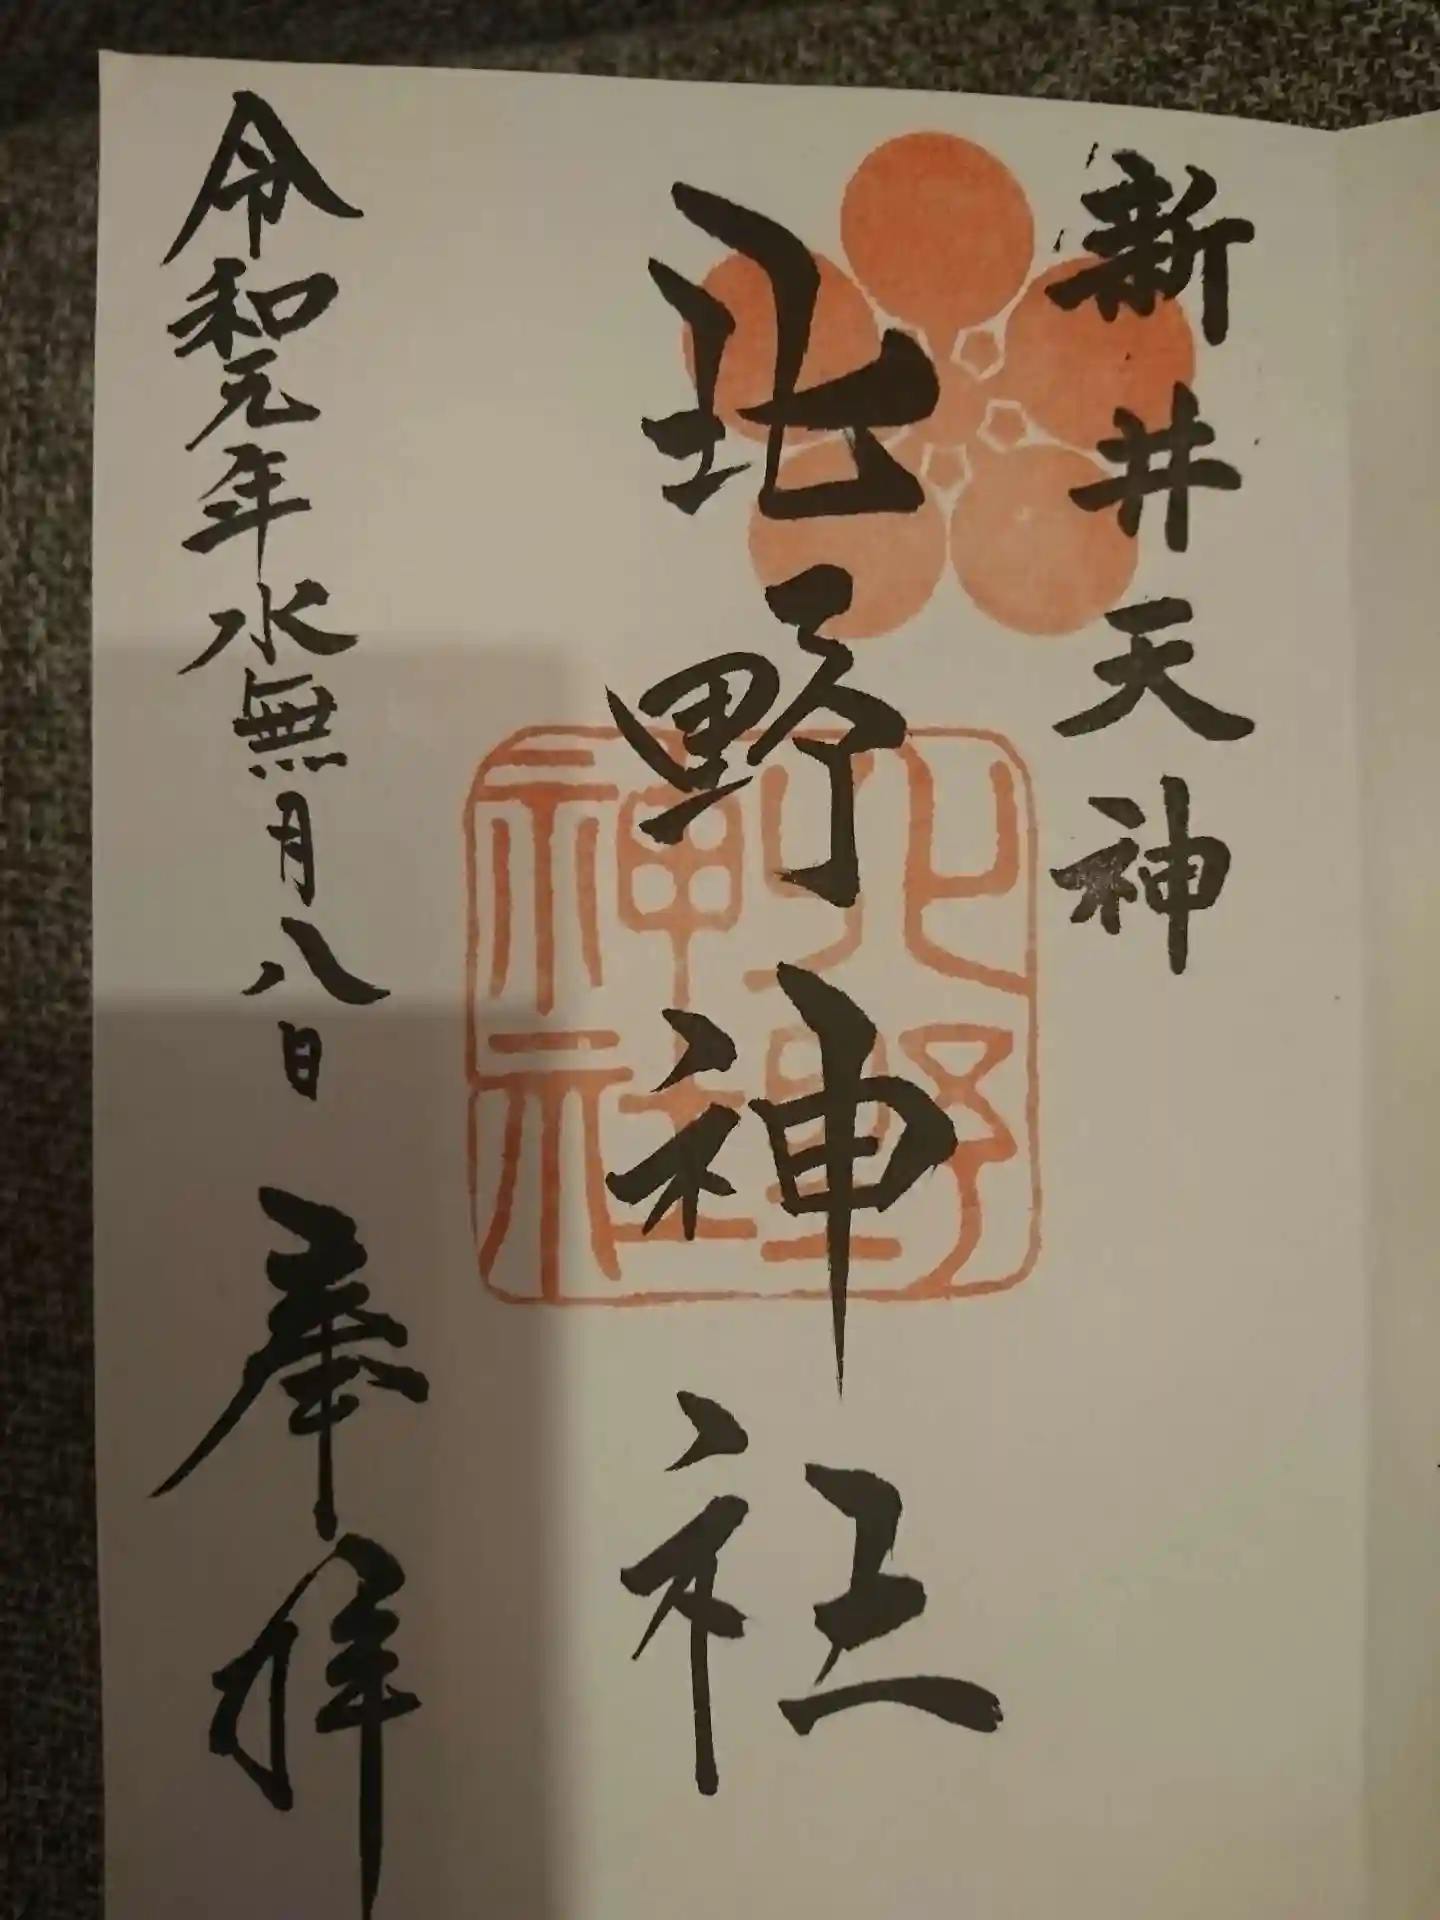 新井天神
北野神社
北野神社
令和元年水無月八日 奉拝